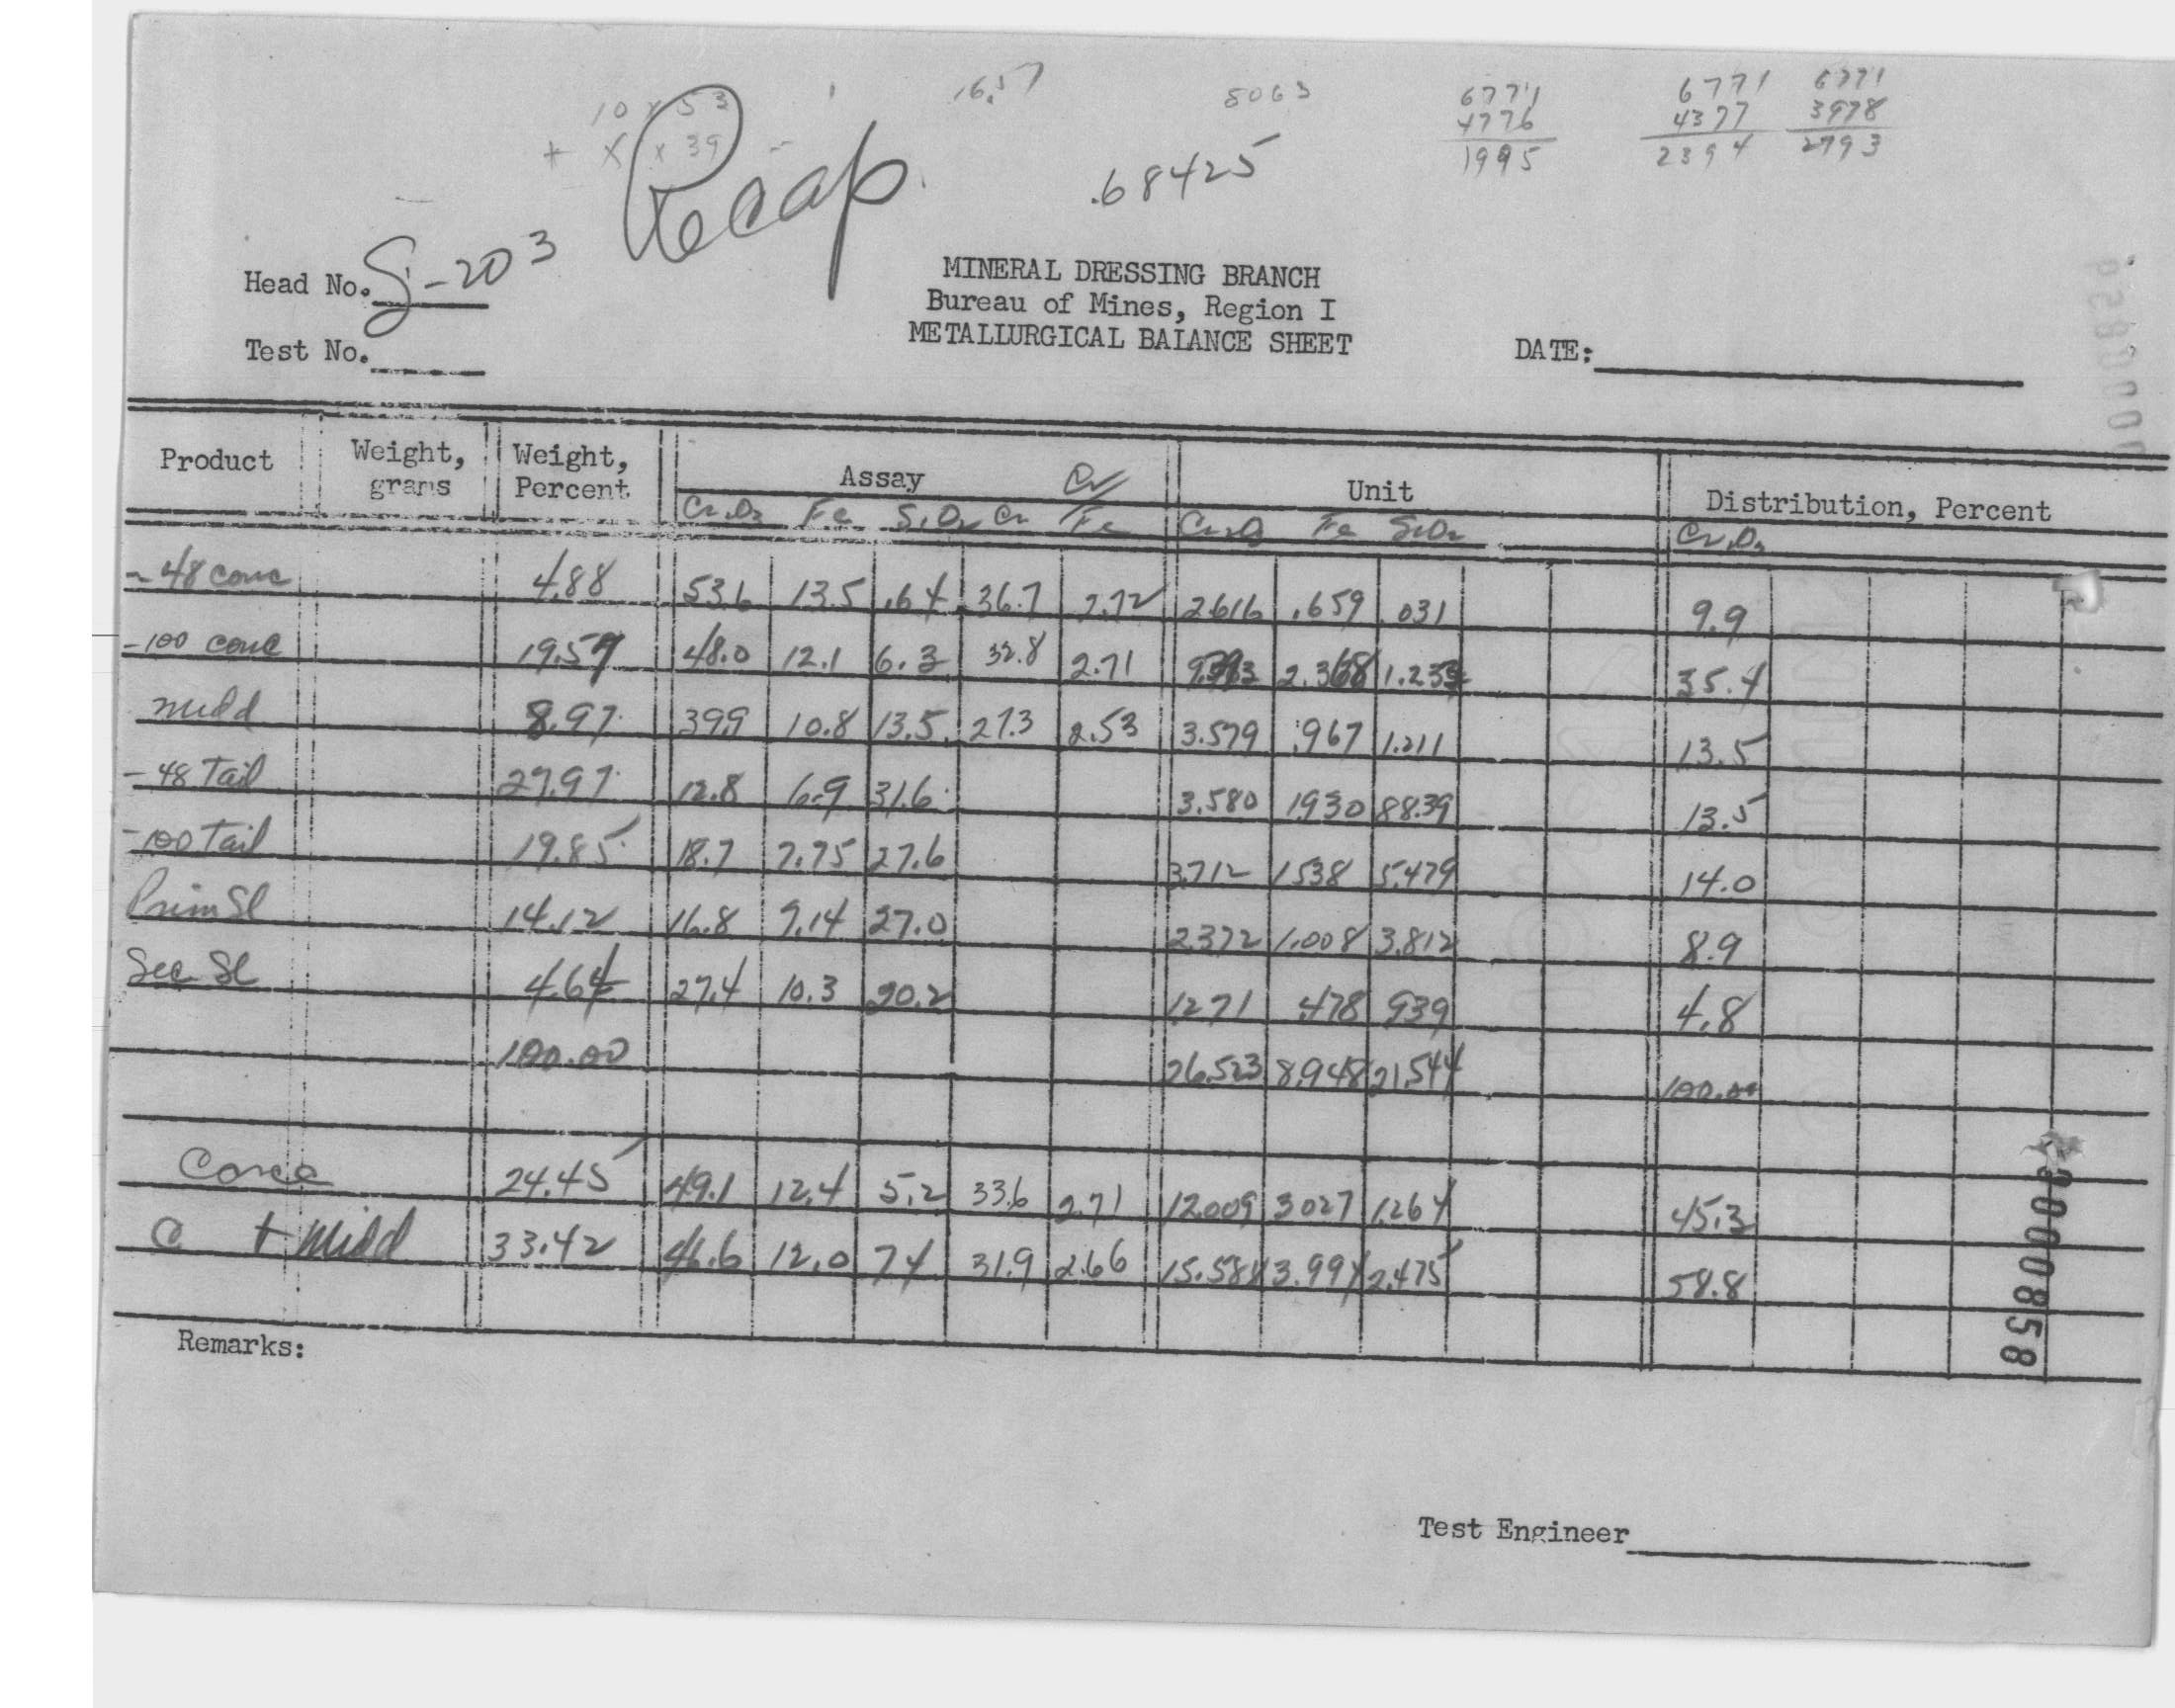 10 x 53
+ X x 39 -
16.57
8063
6771
4776
1995
6771
4377
2394
6771
3978
2793
Recap
.68425
Head No. S-203
Test No.
MINERAL DRESSING BRANCH
Bureau of Mines, Region I
METALLURGICAL BALANCE SHEET
DATE:
Product Weight, grams Weight, Percent Assay Unit Distribution, Percent
Cr2O3 Fe SiO2 Cr Cr/Fe Cr2O3 Fe SiO2 Cr2O3
-48 conc 4.88 53.6 13.5 .64 36.7 2.72 2.616 .659 .031 9.9
-100 conc 19.57 48.0 12.1 6.3 32.8 2.71 9.393 2.368 1.233 35.4
midd 8.97 39.9 10.8 13.5 27.3 2.53 3.579 .967 1.211 13.5
-48 Tail 27.97 12.8 6.9 31.6 3.580 1930 88.39 13.5
-100 Tail 19.85 18.7 7.75 27.6 3.712 1538 5.479 14.0
Prim Sl 14.12 16.8 7.14 27.0 2372 1.008 3.812 8.9
Sec Sl 4.64 27.4 10.3 20.2 1271 .478 939 4.8
100.00 26.523 8.948 21.544 100.00
Conc 24.45 49.1 12.4 5.2 33.6 2.71 12.009 3027 1.264 45.3
C + midd 33.42 46.6 12.0 74 31.9 2.66 15.588 3.994 2.475 58.8
Remarks:
Test Engineer
0000858